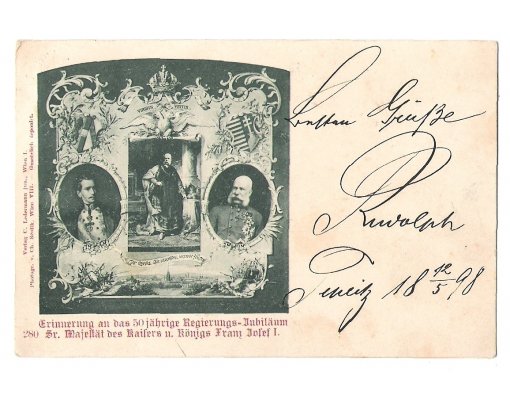 Verlag C. Ledermann jun., Wien I.
Photogr. v. Ch. Scolik, Wien VIII. Gesetzlich geschützt.
VIRIBUS UNITIS
Erinnerung an das 50jährige Regierungs-Jubiläum
280 Sr. Majestät des Kaisers u. Königs Franz Josef I.
Grüße
Rudolph
18 12/5 98